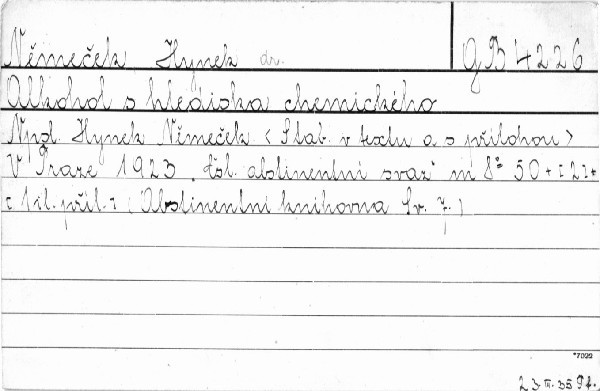 Němeček Hynek dr. gB 4226
Alkohol s hlediska chemického
Nps. Hynek Němeček < S tab. v textu a s přílohou >
V Praze 1923. Čsl. abstinentní svaz m 8° 50 + [2] +
[1] l. příl. ] ( Abstinentní knihovna Sv. 7. )
*7022
23.III.35 Pf.